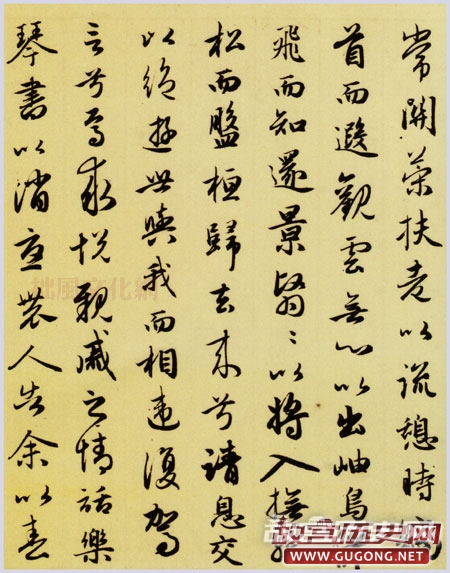 常關策扶老以流憩時矯
首而遐觀雲無心以出岫鳥
飛而知還景翳〻以將入撫
松而盤桓歸去來兮請息交
以絕遊世與我而相違復駕
言兮焉求悅親戚之情話樂
琴書以消憂農人告余以春
拙風文化網
故宫历史网
WWW.GUGONG.NET